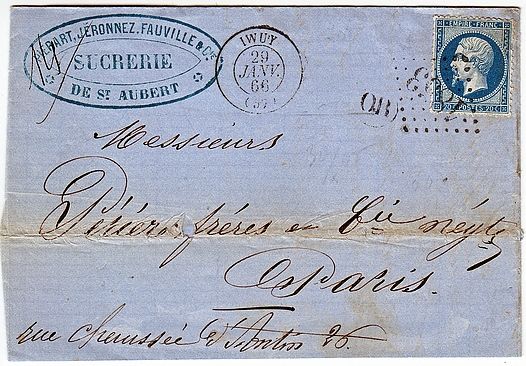 DÉPART, JÉRONNEZ, FAUVILLE & Cie
SUCRERIE
DE St AUBERT
IWUY
29
JANV.
66
(57)
EMPIRE FRANC
20 C POSTES 20 C
OR
Messieurs
Périer frères et Cie négts
Paris
rue chaussée d'Antin 26.